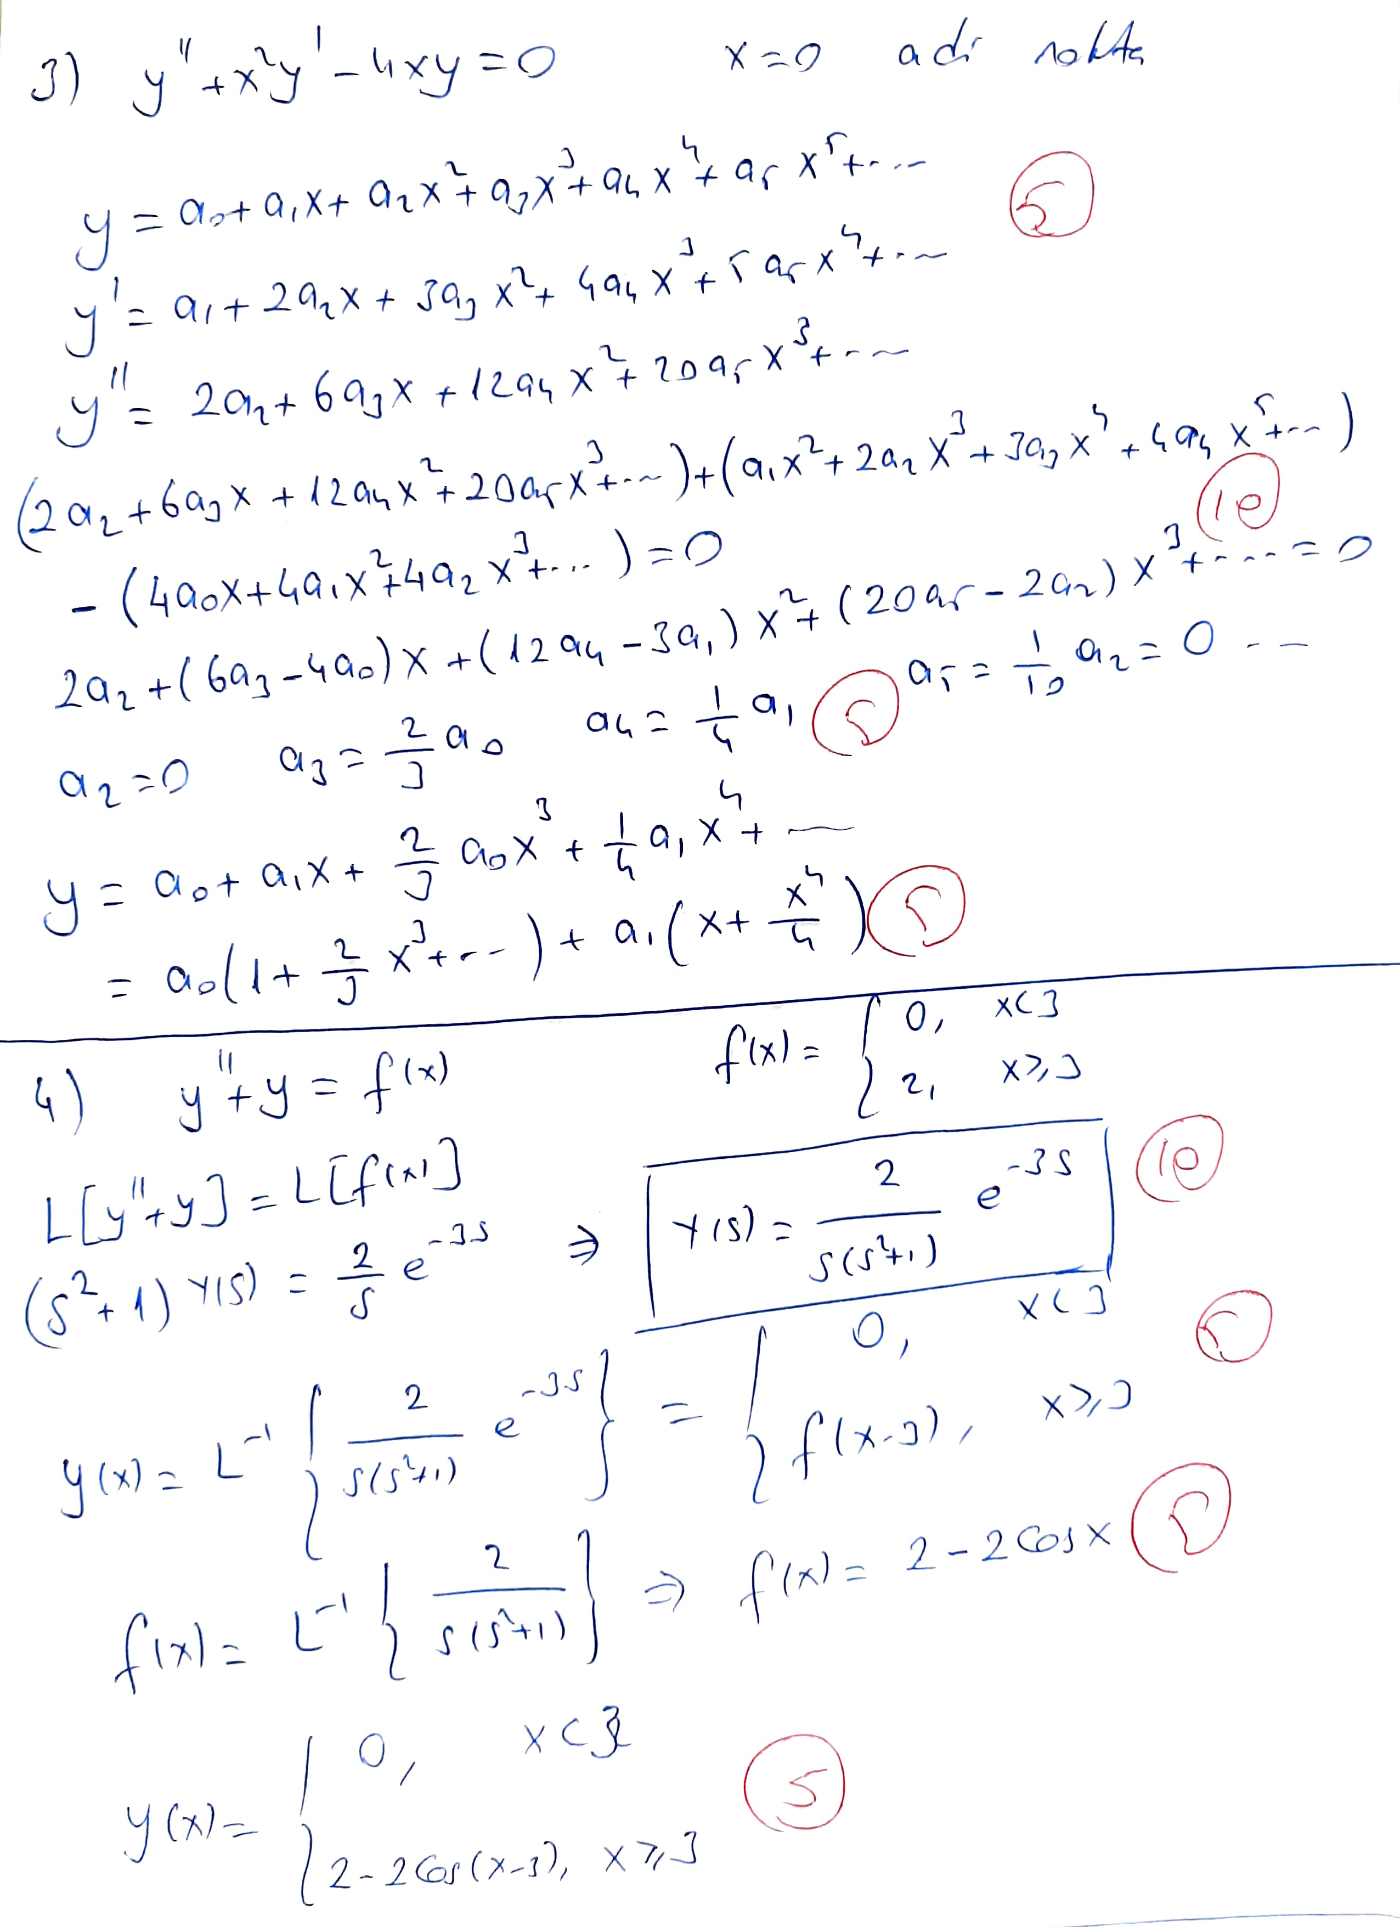 3) y'' + x²y' - 4xy = 0    x=0 adi nokta
y = a₀ + a₁x + a₂x² + a₃x³ + a₄x⁴ + a₅x⁵ + ....    5
y' = a₁ + 2a₂x + 3a₃x² + 4a₄x³ + 5a₅x⁴ + ...
y'' = 2a₂ + 6a₃x + 12a₄x² + 20a₅x³ + ...
(2a₂ + 6a₃x + 12a₄x² + 20a₅x³ + ...) + (a₁x² + 2a₂x³ + 3a₃x⁴ + 4a₄x⁵ + ...)
- (4a₀x + 4a₁x² + 4a₂x³ + ...) = 0    10
2a₂ + (6a₃ - 4a₀)x + (12a₄ - 3a₁)x² + (20a₅ - 2a₂)x³ + .... = 0
a₂ = 0    a₃ = 2/3 a₀    a₄ = 1/4 a₁    5    a₅ = 1/10 a₂ = 0 ...
y = a₀ + a₁x + 2/3 a₀x³ + 1/4 a₁x⁴ + ...
= a₀(1 + 2/3 x³ + ...) + a₁(x + x⁴/4)    5
4) y'' + y = f(x)    f(x) = { 0, x<3
2, x≥3
L[y''+y] = L[f(x)]
(s²+1) Y(s) = 2/s e^{-3s} ⇒ Y(s) = 2/(s(s²+1)) e^{-3s}    10
y(x) = L⁻¹ { 2/(s(s²+1)) e^{-3s} } = { 0, x<3    5
f(x-3), x≥3
f(x) = L⁻¹ { 2/(s(s²+1)) } ⇒ f(x) = 2 - 2Cosx    5
y(x) = { 0, x<3
2-2Cos(x-3), x≥3    5